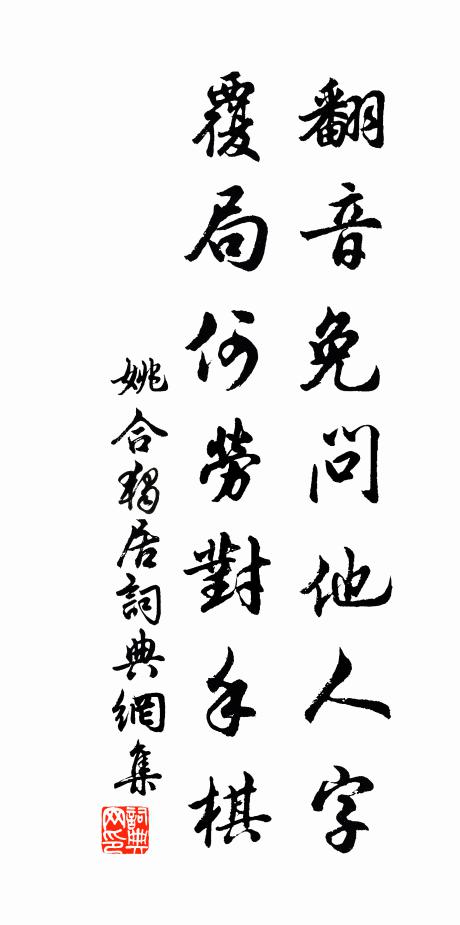 翻音免問他人字
覆局何勞對手棋
姚合獨居詞典網集
詞典網印